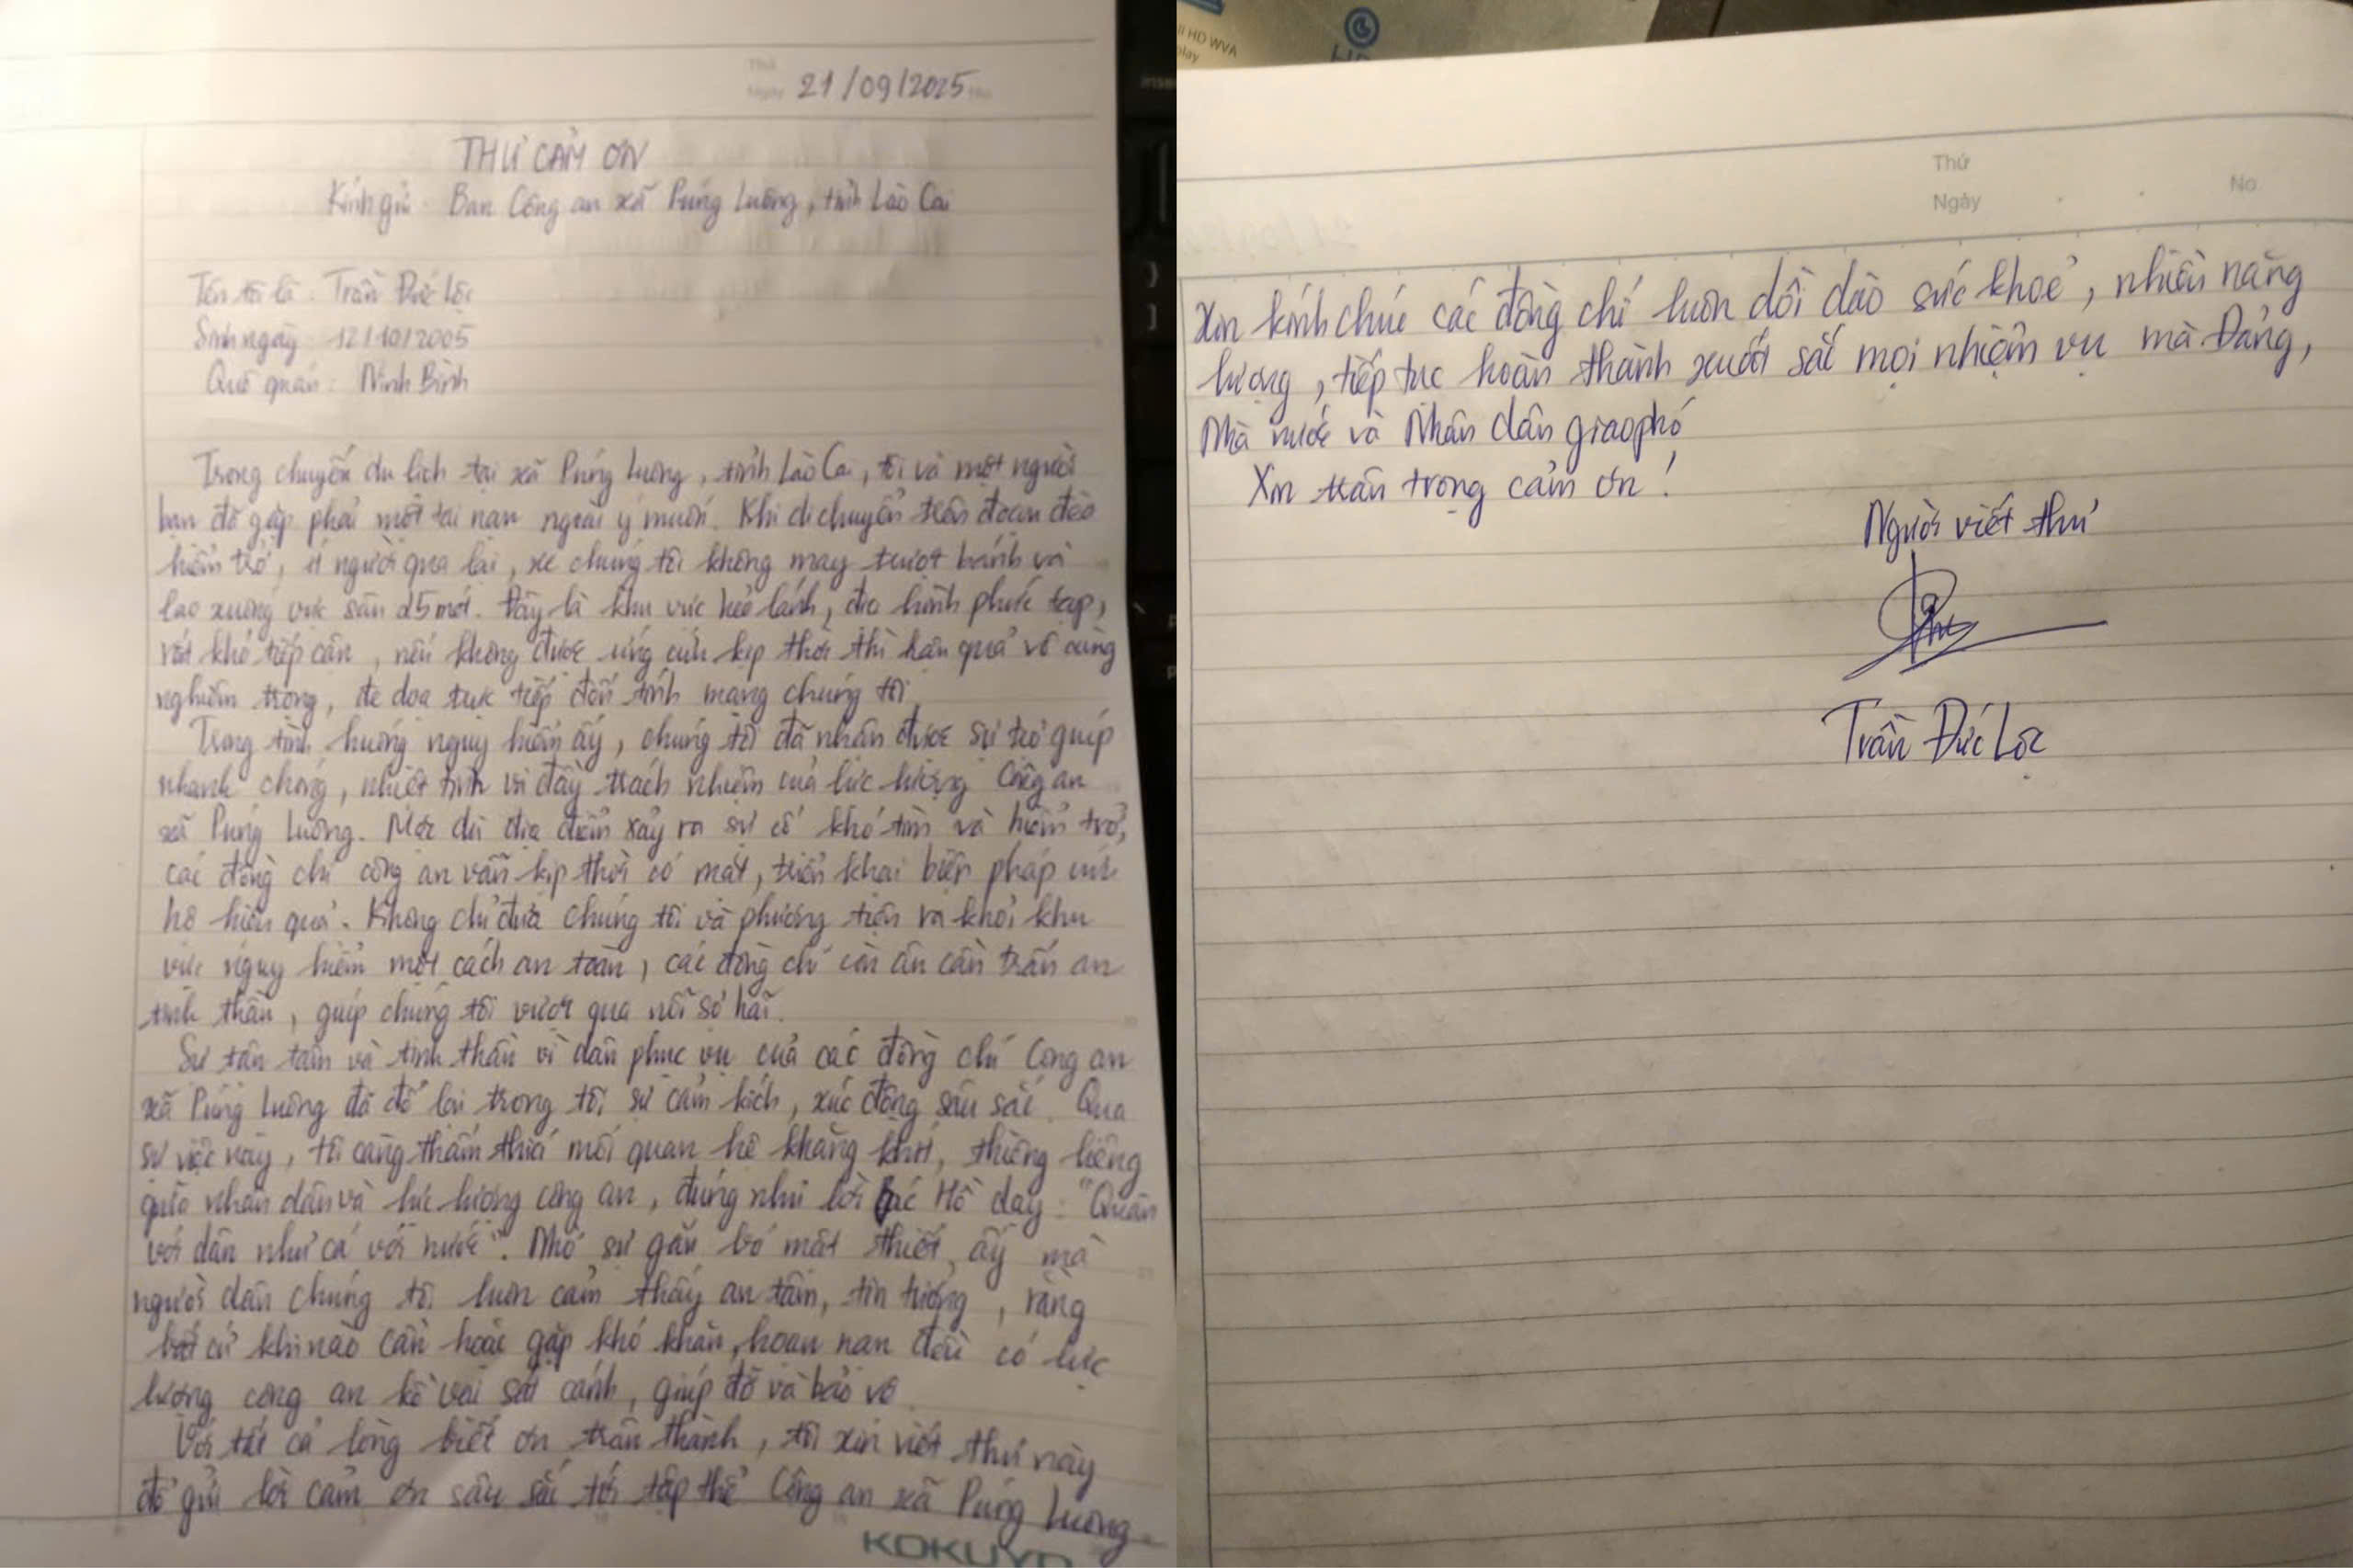 Thứ
Ngày 21/09/2025 No.
THƯ CẢM ƠN
Kính gửi: Ban Công an xã Púng Luông, tỉnh Lào Cai
Tên tôi là: Trần Đức Lộc
Sinh ngày: 12/10/2005
Quê quán: Ninh Bình
Trong chuyến du lịch tại xã Púng Luông, tỉnh Lào Cai, tôi và một người
bạn đã gặp phải một tai nạn ngoài ý muốn. Khi di chuyển trên đoạn đèo
hiểm trở, ít người qua lại, xe chúng tôi không may trượt bánh và
lao xuống vực sâu 25 mét. Đây là khu vực hẻo lánh, địa hình phức tạp,
rất khó tiếp cận, nếu không được ứng cứu kịp thời thì hậu quả vô cùng
nghiêm trọng, đe doạ trực tiếp đến tính mạng chúng tôi.
Trong tình huống nguy hiểm ấy, chúng tôi đã nhận được sự trợ giúp
nhanh chóng, nhiệt tình và đầy trách nhiệm của lực lượng Công an
xã Púng Luông. Mặc dù địa điểm xảy ra sự cố khó tìm và hiểm trở,
các đồng chí công an vẫn kịp thời có mặt, triển khai biện pháp cứu
hộ hiệu quả. Không chỉ đưa chúng tôi và phương tiện ra khỏi khu
vực nguy hiểm một cách an toàn, các đồng chí còn ân cần trấn an
tinh thần, giúp chúng tôi vượt qua nỗi sợ hãi.
Sự tận tâm và tinh thần vì dân phục vụ của các đồng chí Công an
xã Púng Luông đã để lại trong tôi sự cảm kích, xúc động sâu sắc. Qua
sự việc này, tôi càng thấm thía mối quan hệ khăng khít, thiêng liêng
giữa nhân dân và lực lượng công an, đúng như lời Bác Hồ dạy: "Quân
với dân như cá với nước". Nhờ sự gắn bó mật thiết ấy mà
người dân chúng tôi luôn cảm thấy an tâm, tin tưởng, rằng
bất cứ khi nào cần hoặc gặp khó khăn, hoạn nạn đều có lực
lượng công an kề vai sát cánh, giúp đỡ và bảo vệ.
Với tất cả lòng biết ơn trân thành, tôi xin viết thư này
để gửi lời cảm ơn sâu sắc tới tập thể Công an xã Púng Luông.
KOKUYO
Thứ
Ngày No.
Xin kính chúc các đồng chí luôn dồi dào sức khoẻ, nhiều năng
lượng, tiếp tục hoàn thành xuất sắc mọi nhiệm vụ mà Đảng,
Nhà nước và Nhân dân giao phó
Xin trân trọng cảm ơn!
Người viết thư
Trần Đức Lộc